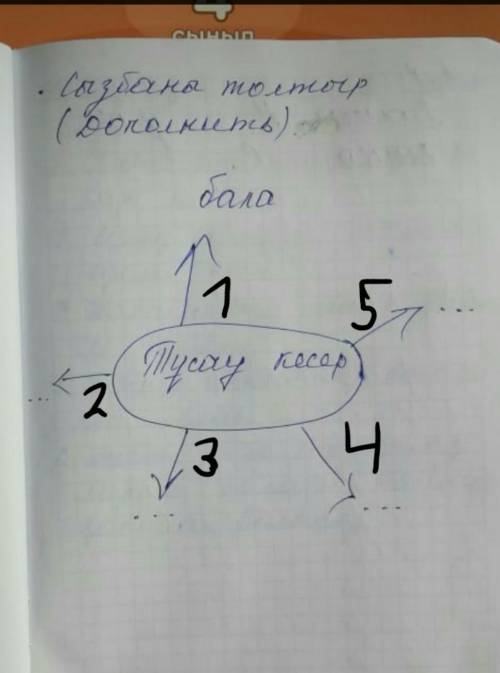 4
СЫНЫП
• Сызбаны толтыр
(Дополнить)
бала
1
5
...
Тұсау кесер
2
...
3
4
...
...